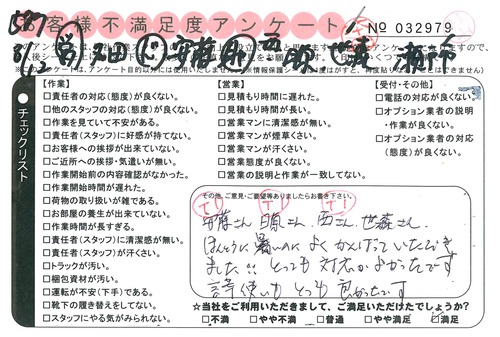 お客様不満足度アンケート
No 032979
587
8/2
チェックリスト
【作業】
□責任者の対応(態度)が良くない。
□他のスタッフの対応(態度)が良くない。
□作業を見ていて不安がある。
□責任者(スタッフ)に好感が持てない。
□お客様への挨拶が出来ていない。
□ご近所への挨拶・気遣いが無い。
□作業開始前の内容確認がなかった。
□作業開始時間が遅れた。
□荷物の取り扱いが雑である。
□お部屋の養生が出来ていない。
□作業時間が長すぎる。
□責任者(スタッフ)に清潔感が無い。
□責任者(スタッフ)が汗くさい。
□トラックが汚い。
□梱包資材が汚い。
□運転が不安(下手)である。
□靴下の履き替えをしてない。
□スタッフにやる気がみられない。
【営業】
□見積もり時間に遅れた。
□見積もり時間が長い。
□営業マンに清潔感が無い。
□営業マンが煙草くさい。
□営業マンが汗くさい。
□営業態度が良くない。
□営業の説明と作業が一致してない。
【受付・その他】
□電話の対応が良くない。
□オプション業者の説明
・作業が良くない。
□オプション業者の対応
(態度)が良くない。
その他、ご意見・ご要望等ありましたらお書き下さい。
ほんとうに暑いのによくがんばっていただき
ました!! とっても対応がよかったです
言葉使いもとっても良かったです
☆当社をご利用いただきまして、ご満足いただけたでしょうか?
□不満 □やや不満 □普通 □やや満足 □満足